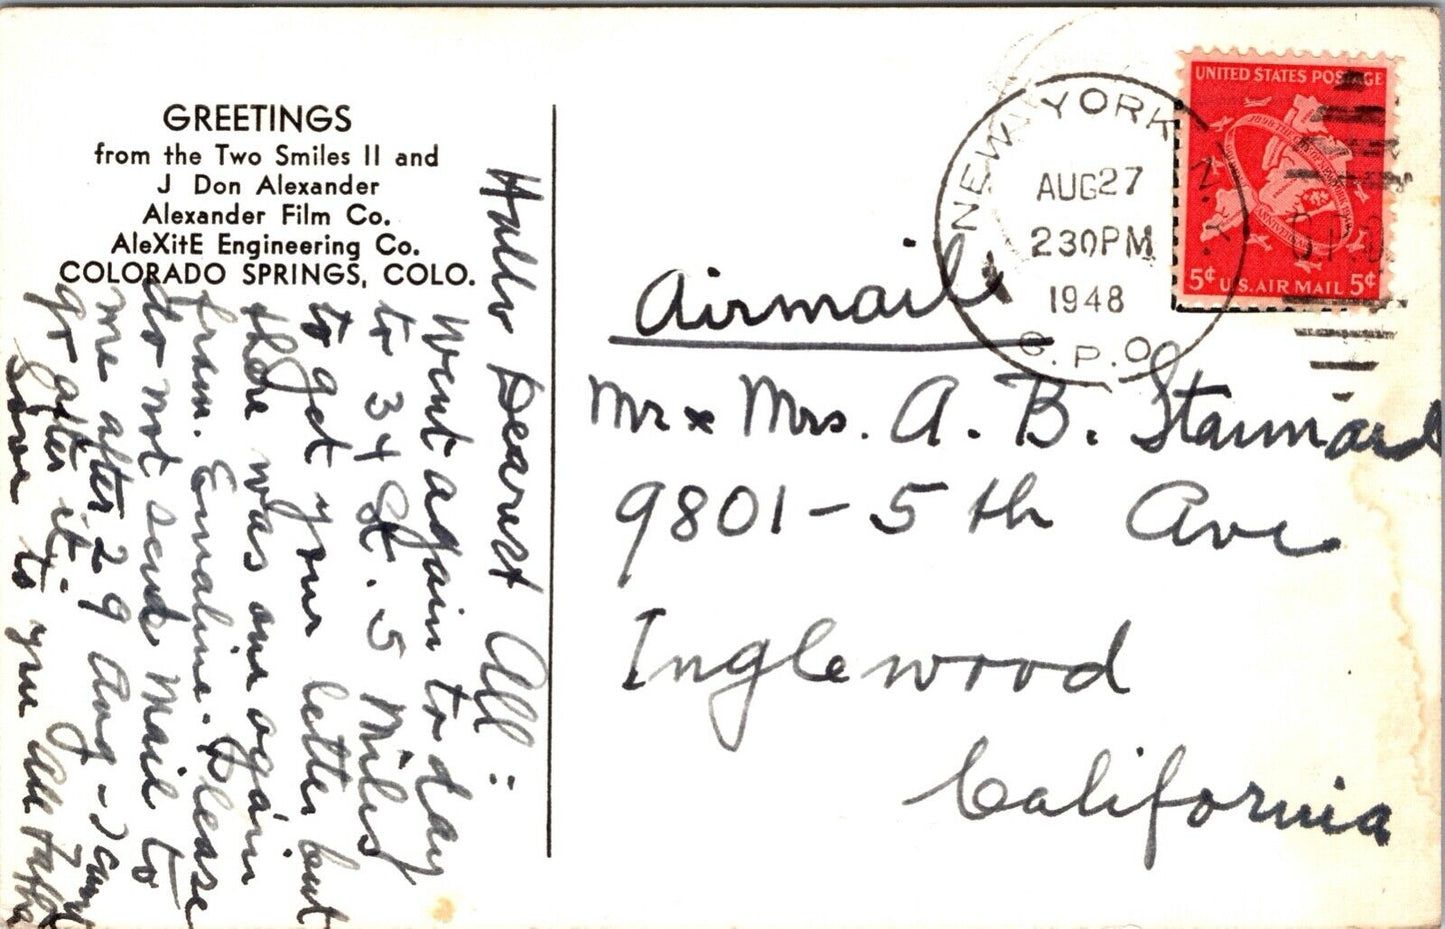 GREETINGS
from the Two Smiles II and
J Don Alexander
Alexander Film Co.
AleXitE Engineering Co.
COLORADO SPRINGS, COLO.
Hello Dearest All:
Went again to day
to 34 St. 5 Miles
to get your letter but
there was one again
from Emaline. Please
do not send Mail to
me after 29 Aug - I cant
go after it.
Love to you all
NEW YORK N.Y.
AUG 27
230PM
1948
G.P.O.
UNITED STATES POSTAGE
1898 THE CITY OF NEW YORK 1948
ANNIVERSARY
5¢ U.S. AIR MAIL 5¢
Airmail
Mr & Mrs. A. B. Stannard
9801 - 5 th Ave
Inglewood
California